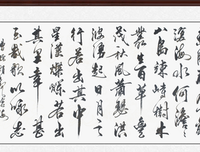 滄海水何澹澹
山島竦峙樹木
叢生百草豐
茂秋風蕭瑟洪
波湧起日月之
行若出其中
星漢燦爛若出
其里幸甚
至哉歌以詠志